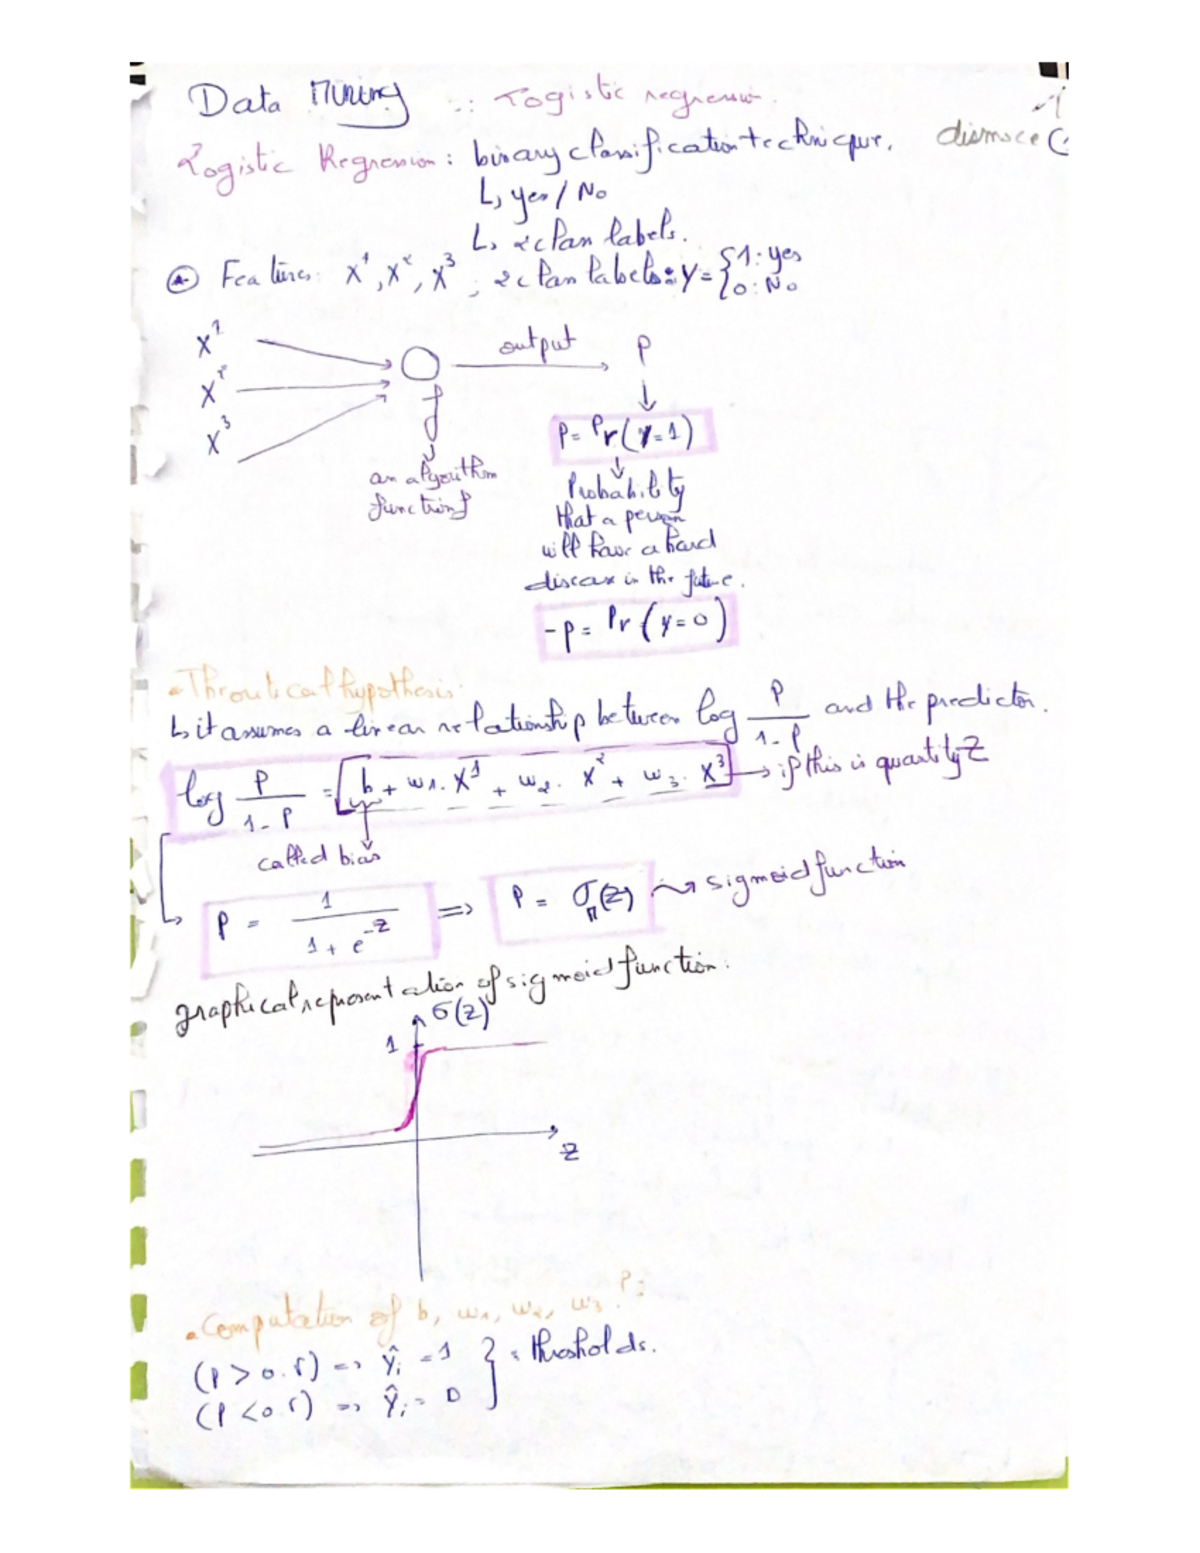 Data Mining :: Logistic regression.
Logistic Regression: binary classification technique.
↳ yes / No
↳ 2 class labels.
Features: X¹, X², X³ ; 2 class labels: y = { 1: yes
0: No
X¹
output P
X²
X³
f
P = Pr(Y=1)
an algorithm
function f
Probability
that a person
will have a hard
disease in the future.
-P = Pr(y=0)
Theoutical hypothesis:
↳ it assumes a linear relationship between log P/1-P and the predictor.
log P/1-P = b + w1. X¹ + w2. X² + w3. X³ → if this is quantity Z
called bias
P = 1/1+e^-z => P = σ(z) sigmoid function
graphical representation of sigmoid function.
σ(z)
1
Z
Computation of b, w1, w2, w3 ?:
(P > 0.5) => ŷi = 1
(P < 0.5) => ŷi = 0 } : thresholds.